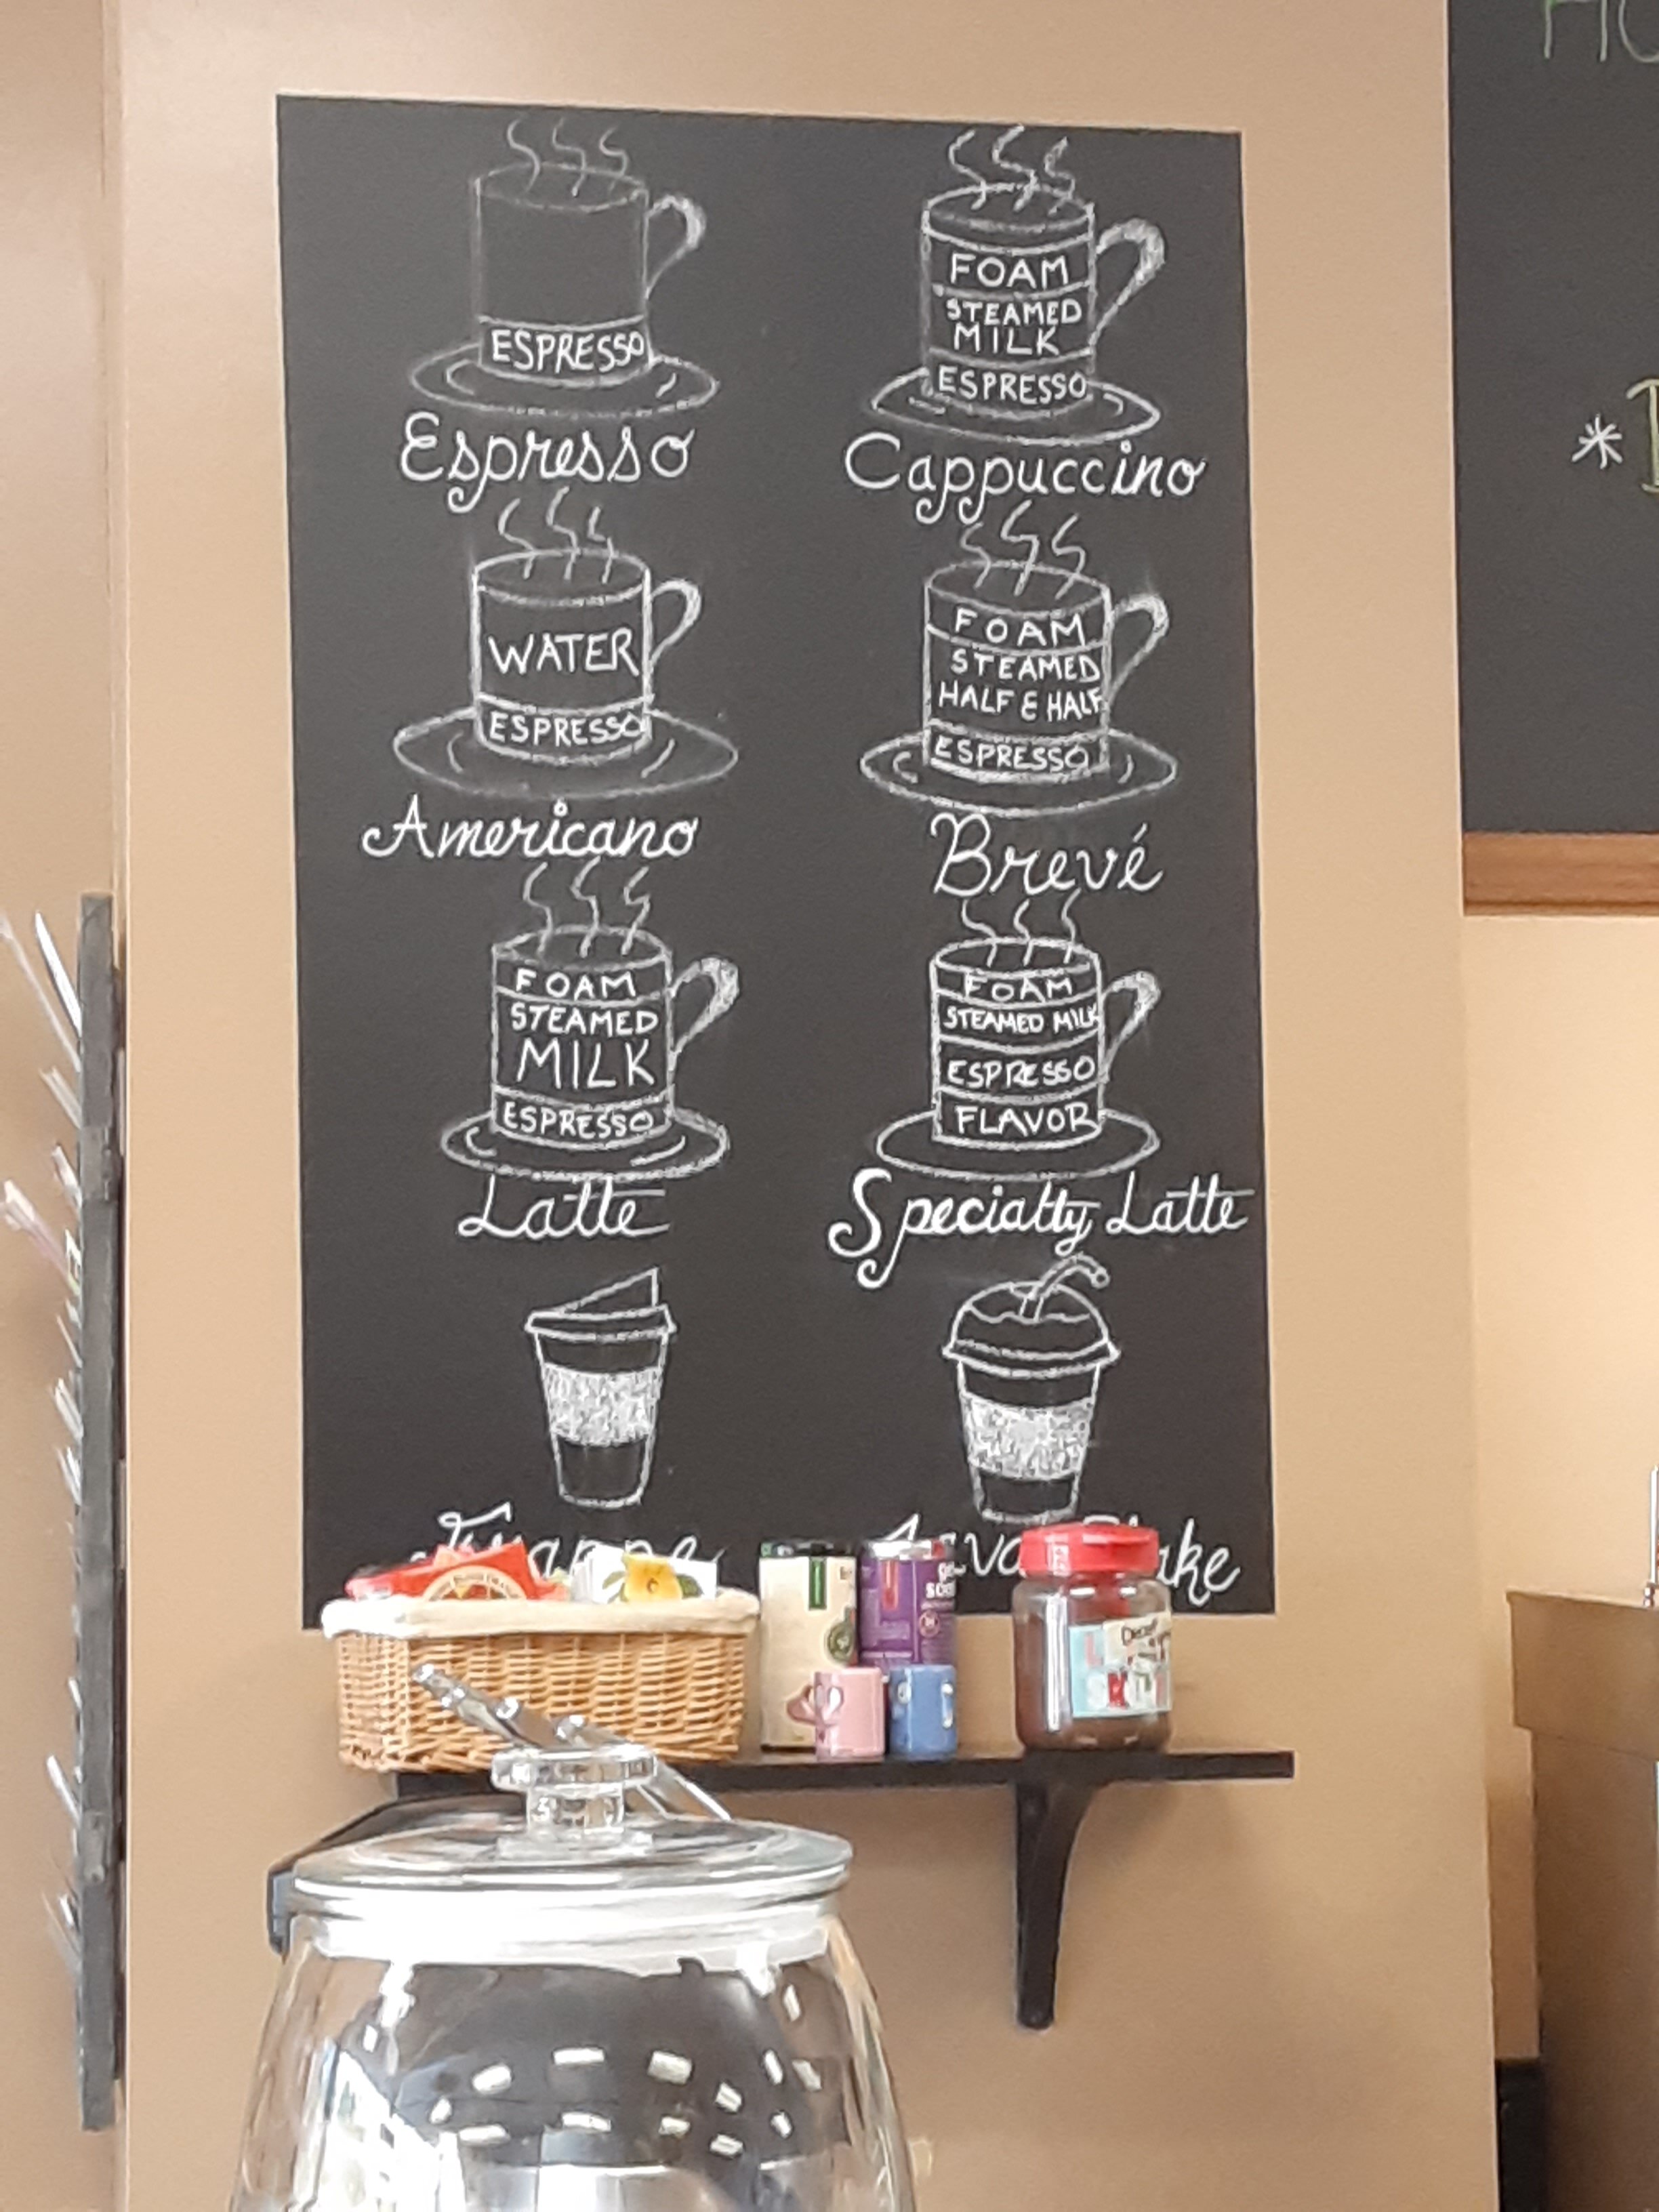 ESPRESSO
Espresso
FOAM
STEAMED
MILK
ESPRESSO
Cappuccino
WATER
ESPRESSO
Americano
FOAM
STEAMED
HALF & HALF
ESPRESSO
Brevé
FOAM
STEAMED
MILK
ESPRESSO
Latte
FOAM
STEAMED MILK
ESPRESSO
FLAVOR
Specialty Latte
Frappe
Decaf